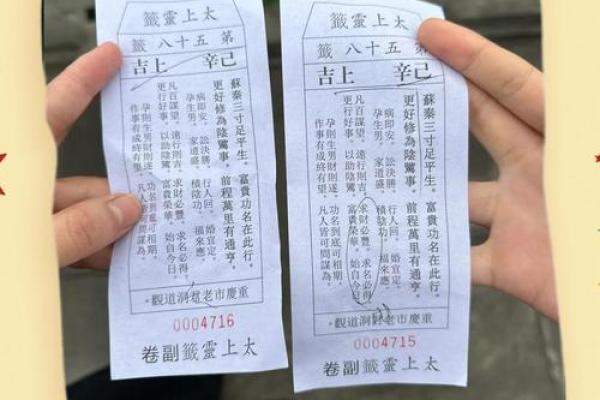 太上靈籤
第五十八籤
己辛 上吉
蘇秦三寸足平生。富貴功名在此行。
更好修為陰騭事。前程萬里有通亨。
病即安。訟決勝。行人回。婚宜定。
孕生男。家道盛。積陰功。福來應。
凡百謀望。遠行則吉。求財必豐。求名必得。
更行好事。以助陰騭。富貴榮華。始自今日。
孕則生男財則遂。功名到底可相期。
作事有成終有望。凡人謀為。
重慶市老君洞道觀·
0004716
太上靈籤副卷
太上靈籤
第五十八籤
己辛 上吉
蘇秦三寸足平生。富貴功名在此行。
更好修為陰騭事。前程萬里有通亨。
病即安。訟決勝。行人回。婚宜定。
孕生男。家道盛。積陰功。福來應。
凡百謀望。遠行則吉。求財必豐。求名必得。
更行好事。以助陰騭。富貴榮華。始自今日。
孕則生男財則遂。功名到底可相期。
作事有成終有望。凡人皆可問謀為。
重慶市老君洞道觀·
0004715
太上靈籤副卷